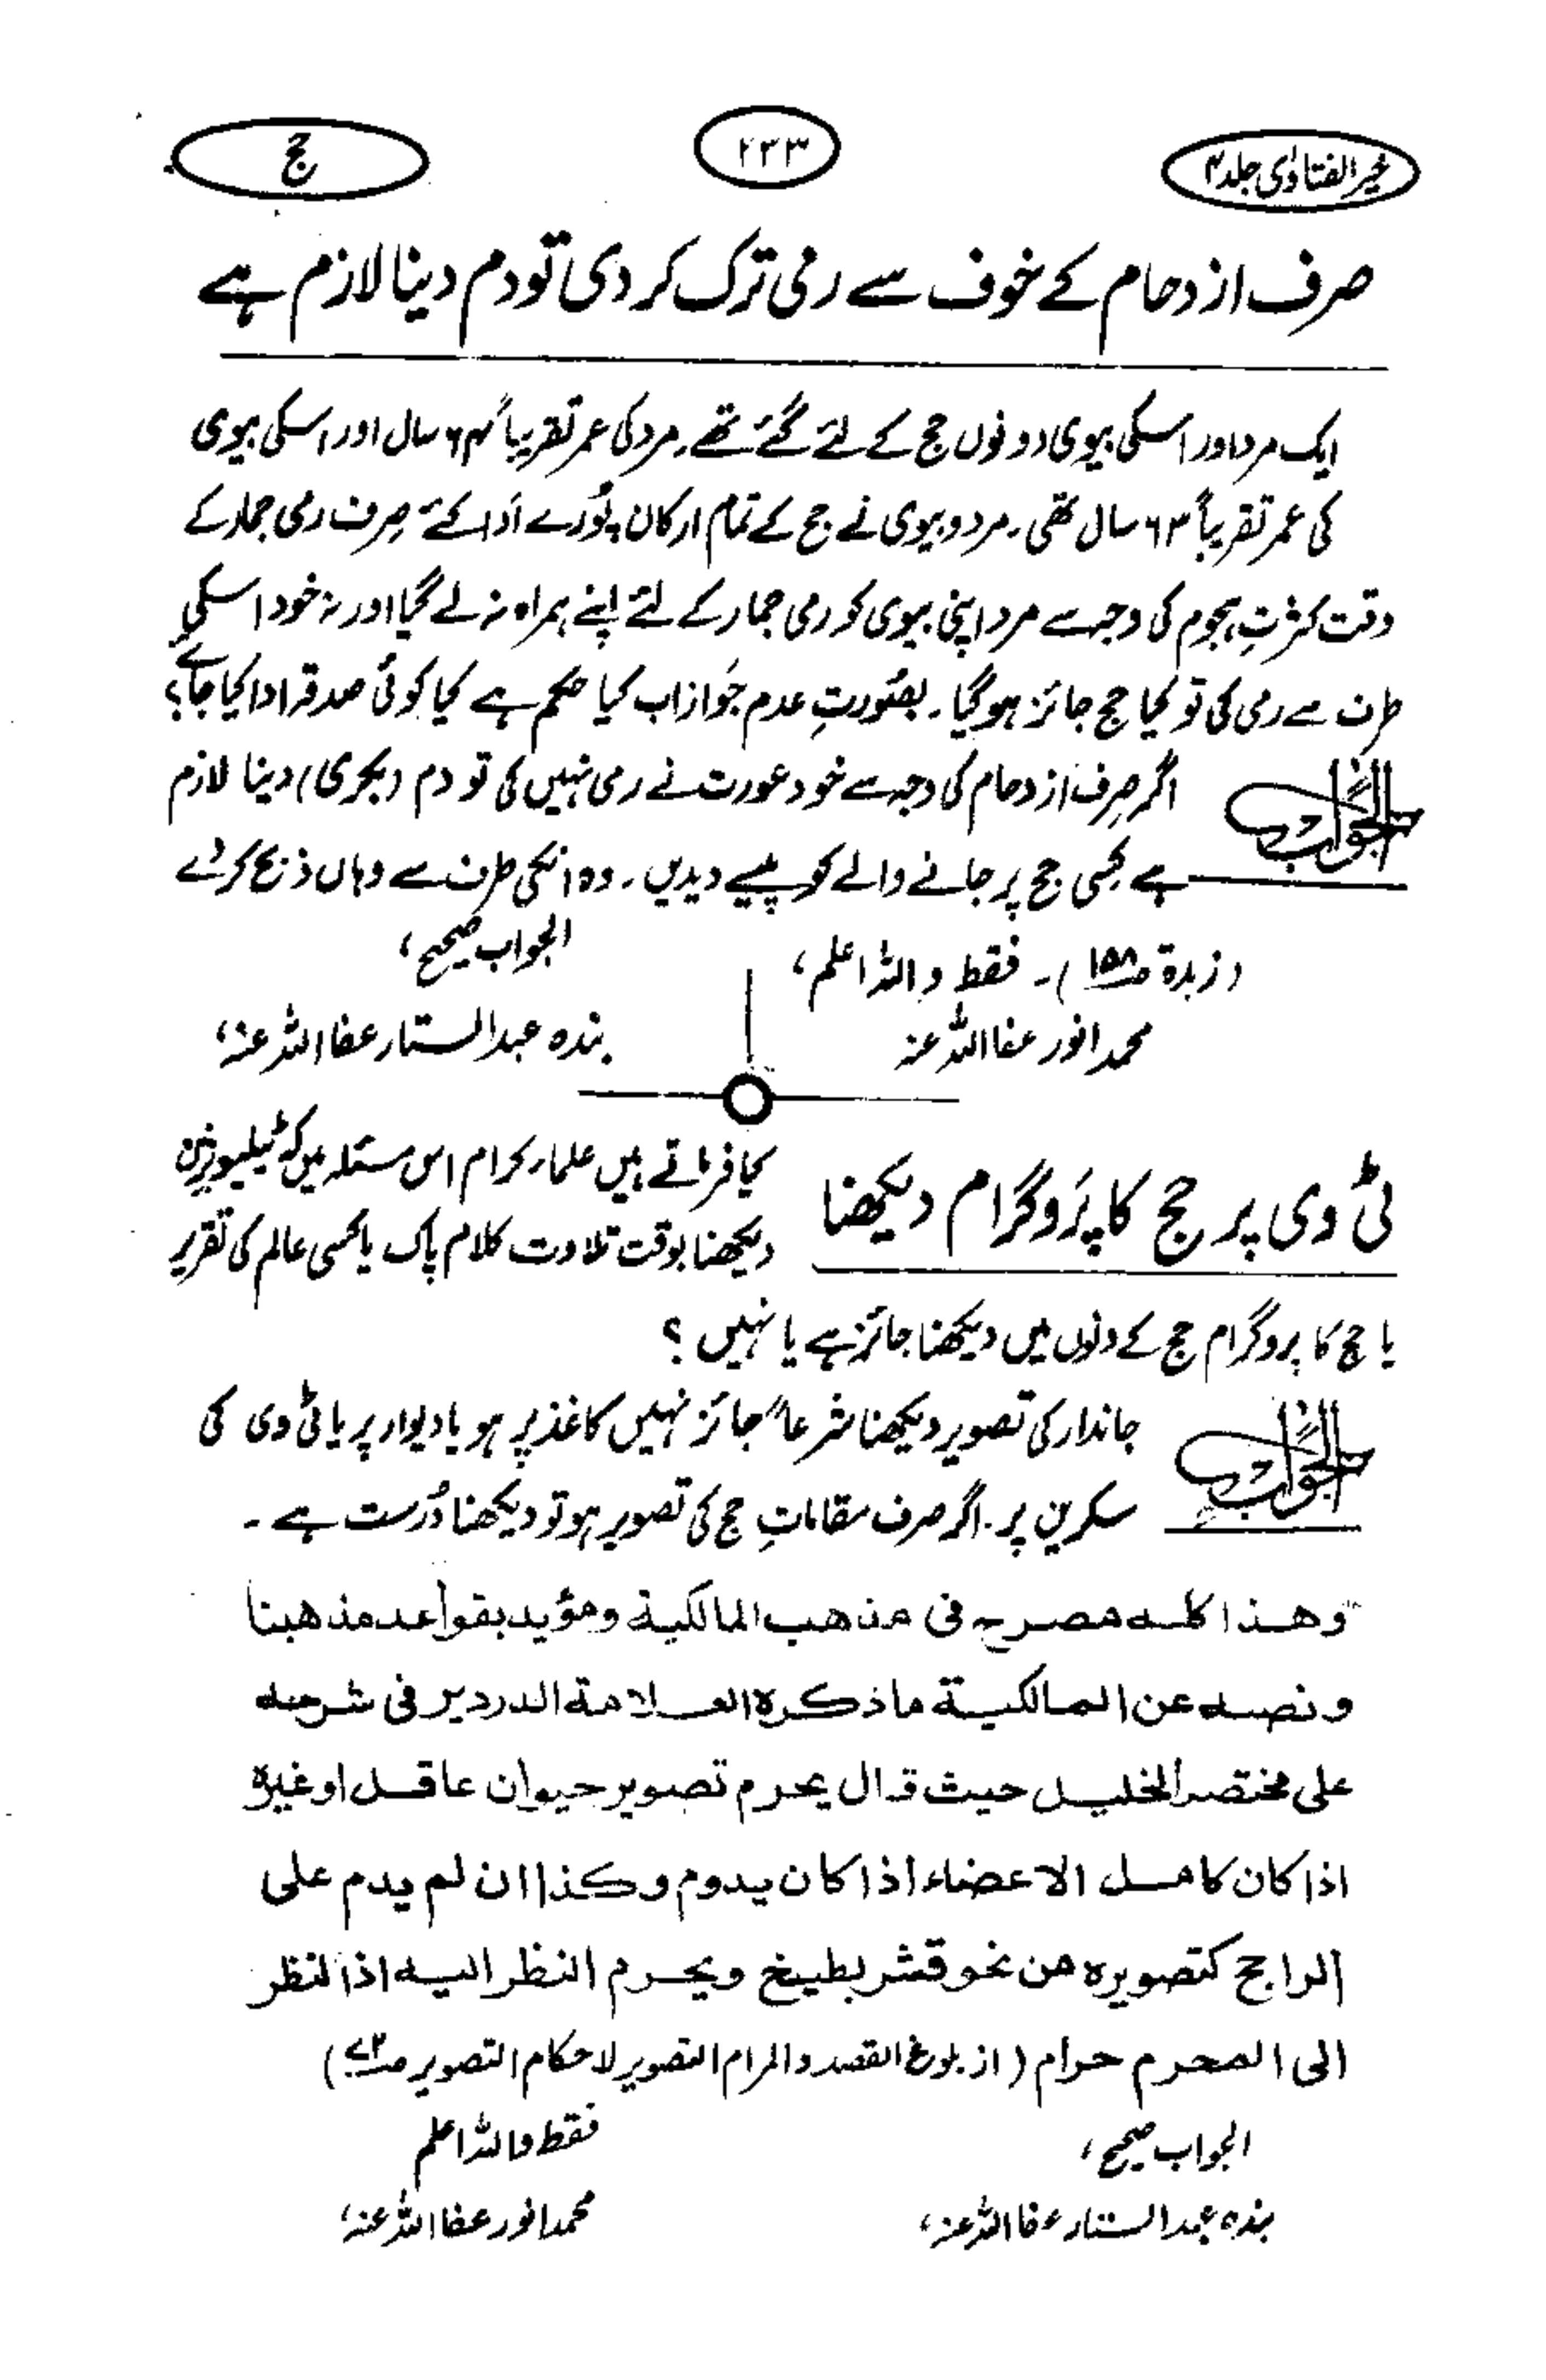 خیر الفتاوٰی جلد ۴
۲۳۳
حج
صرف ازدحام کے خوف سے رمی ترک کر دی تو دم دینا لازم ہے
ایک مرد اور اسکی بیوی دونوں حج کے لئے گئے تھے۔ مرد کی عمر تقریباً ۶۴ سال اور اسکی بیوی
کی عمر تقریباً ۶۳ سال تھی۔ مرد و بیوی نے حج کے تمام ارکان پُورے اَدا کئے صِرف رمی جمار کے
وقت کثرتِ ہجوم کی وجہ سے مرد اپنی بیوی کو رمی جمار کے لئے اپنے ہمراہ نہ لے گیا اور نہ خود اسکی
طرف سے رمی کی تو کیا حج جائز ہو گیا۔ بصُورتِ عدم جَواز اب کیا حکم ہے کیا کوئی صدقہ ادا کیا جائے؟
الجواب اگر صِرف ازدحام کی وجہ سے خود عورت نے رمی نہیں کی تو دم (بکری) دینا لازم
ہے کسی حج پر جانے والے کو پیسے دیدیں۔ وہ انکی طرف سے وہاں ذبح کر دے
(زبدۃ صـ۱۵۸)۔ فقط واللہ اعلم،
الجواب صحیح،
محمد انور عفا اللہ عنہ
بندہ عبدالستار عفا اللہ عنہ،
ٹی وی پر حج کا پَروگرام دیکھنا
کیا فرماتے ہیں علماء کرام اس مسئلہ میں کہ ٹیلیویژن
دیکھنا بوقت تلاوت کلام پاک یا کسی عالم کی تقریر
یا حج کا پروگرام حج کے دنوں میں دیکھنا جائز ہے یا نہیں ؟
الجواب جاندار کی تصویر دیکھنا شرعاً جائز نہیں کاغذ پر ہو یا دیوار پر یا ٹی وی کی
سکرین پر۔ اگر صرف مقاماتِ حج کی تصویر ہو تو دیکھنا دُرست ہے۔
وهذا كله مصرح فى مذهب المالكية ومؤيد بقواعد مذهبنا
ونصه عن المالكية ما ذكره العلامة الدردير فى شرحه
على مختصر الخليل حيث قال يحرم تصوير حيوان عاقل او غيره
اذا كان كامل الاعضاء اذا كان يدوم وكذا ان لم يدم على
الراجح كتصويره من نحو قشر بطيخ ويحرم النظر اليه اذ النظر
الى المحرم حرام (از بلوغ القصد والمرام التصوير لاحكام التصوير صـ)
الجواب صحیح،
فقط واللہ اعلم
بندہ عبدالستار عفا اللہ عنہ،
محمد انور عفا اللہ عنہ،